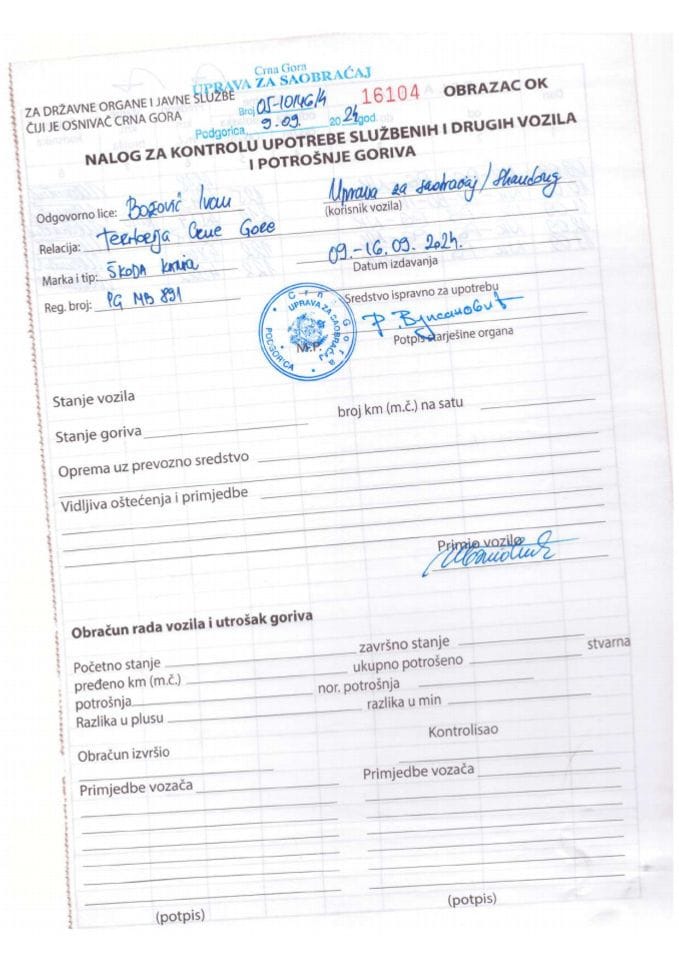 Crna Gora
UPRAVA ZA SAOBRAĆAJ
ZA DRŽAVNE ORGANE I JAVNE SLUŽBE
ČIJI JE OSNIVAČ CRNA GORA
Broj 05-10146/4
16104 OBRAZAC OK
Podgorica, 9.09. 2024 god.
NALOG ZA KONTROLU UPOTREBE SLUŽBENIH I DRUGIH VOZILA
I POTROŠNJE GORIVA
Odgovorno lice: Božović Ivan
Uprava za saobraćaj/
(korisnik vozila)
Relacija: Crne Gore
09.-16.09.2024.
Datum izdavanja
Marka i tip: ŠKODA
Sredstvo ispravno za upotrebu
Reg. broj: PG MB 891
Potpis starješine organa
Crna Gora
UPRAVA ZA SAOBRAĆAJ
PODGORICA
M.P.
Stanje vozila
broj km (m.č.) na satu
Stanje goriva
Oprema uz prevozno sredstvo
Vidljiva oštećenja i primjedbe
Primio vozilo
Obračun rada vozila i utrošak goriva
Početno stanje završno stanje stvarna
pređeno km (m.č.) ukupno potrošeno
potrošnja nor. potrošnja
Razlika u plusu razlika u min
Kontrolisao
Obračun izvršio
Primjedbe vozača Primjedbe vozača
(potpis) (potpis)